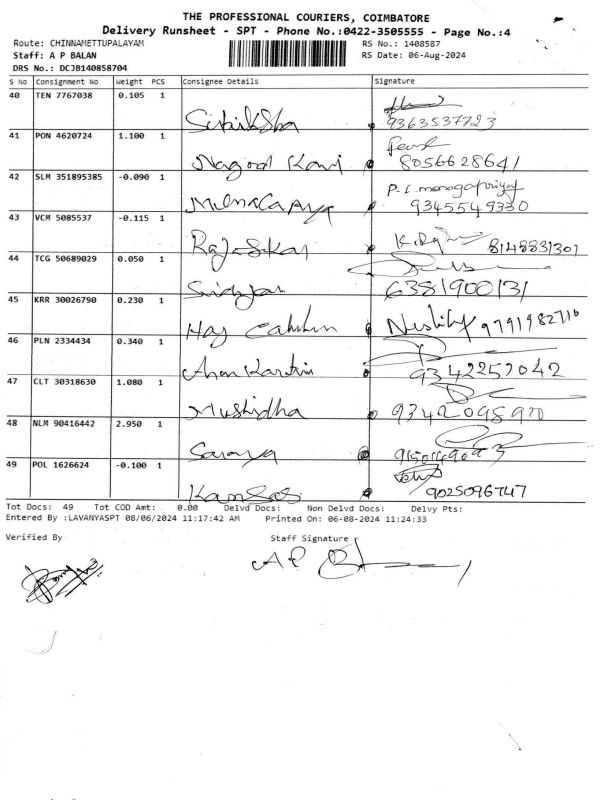 THE PROFESSIONAL COURIERS, COIMBATORE
Delivery Runsheet - SPT - Phone No.:0422-3505555 - Page No.:4
Route: CHINNAMETTUPALAYAM RS No.: 1408587
Staff: A P BALAN RS Date: 06-Aug-2024
DRS No.: DCJB140858704
S No Consignment No Weight PCS Consignee Details Signature
40 TEN 7767038 0.105 1
9363537723
41 PON 4620724 1.100 1
Nagool Kani 8056628641
42 SLM 351895385 -0.090 1
9345549330
43 VCM 5085537 -0.115 1
RajaSekar 8148831301
44 TCG 50689029 0.050 1
6381900131
45 KRR 30026790 0.230 1
9791982710
46 PLN 2334434 0.340 1
9342257042
47 CLT 30318630 1.080 1
Mushidha 9342098970
48 NLM 90416442 2.950 1
Saranya
49 POL 1626624 -0.100 1
Kansas 9025096747
Tot Docs: 49 Tot COD Amt: 0.00 Delvd Docs: Non Delvd Docs: Delvy Pts:
Entered By :LAVANYASPT 08/06/2024 11:17:42 AM Printed On: 06-08-2024 11:24:33
Verified By Staff Signature
A P